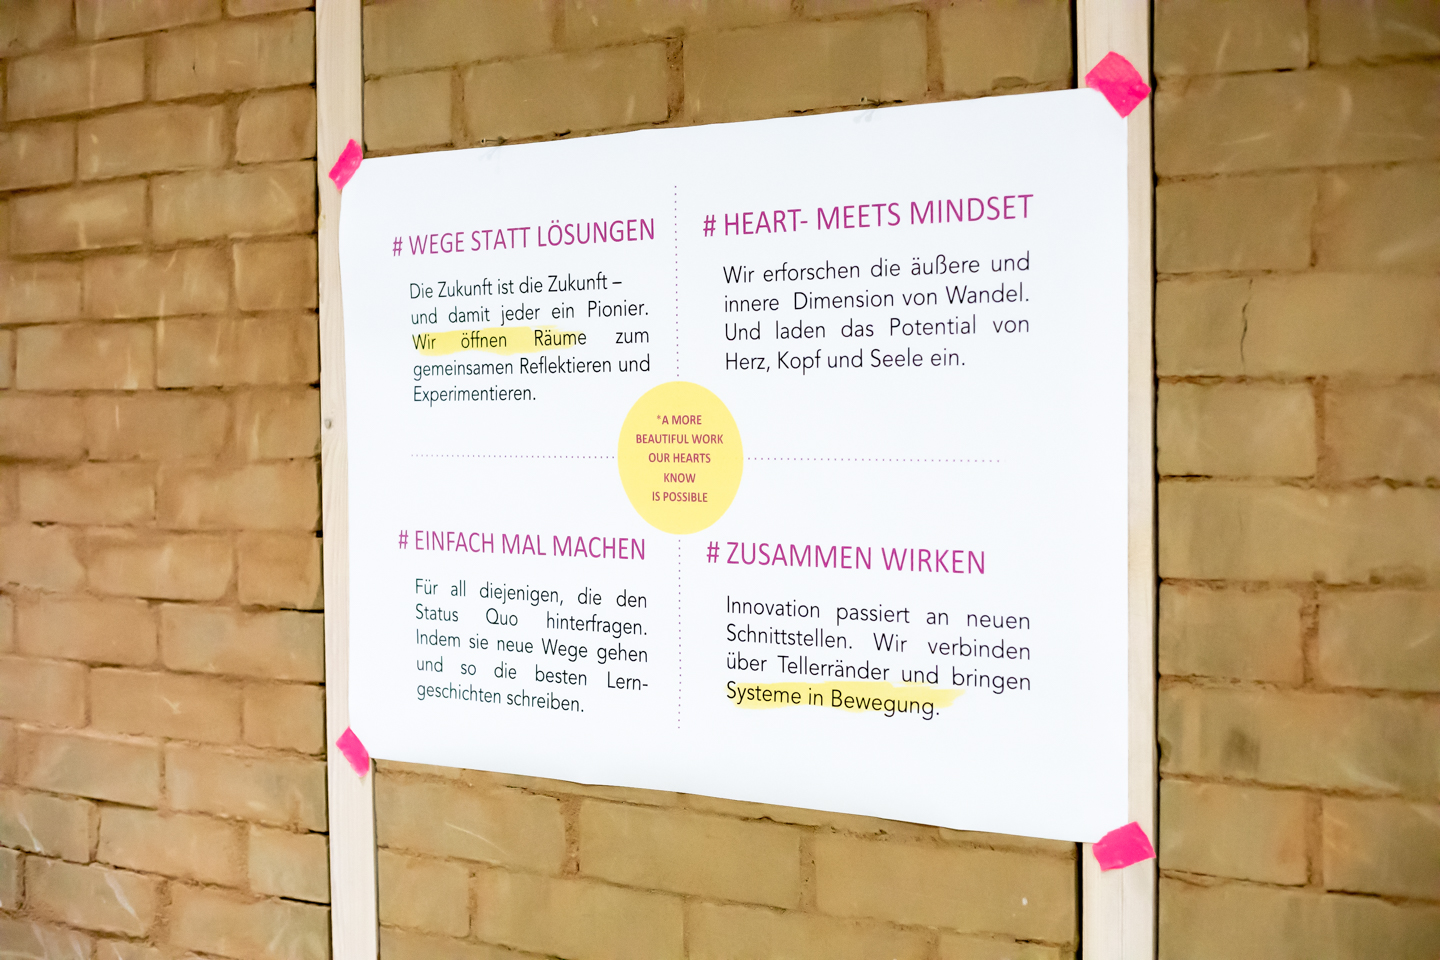 # WEGE STATT LÖSUNGEN
Die Zukunft ist die Zukunft –
und damit jeder ein Pionier.
Wir öffnen Räume zum
gemeinsamen Reflektieren und
Experimentieren.
# HEART- MEETS MINDSET
Wir erforschen die äußere und
innere Dimension von Wandel.
Und laden das Potential von
Herz, Kopf und Seele ein.
*A MORE
BEAUTIFUL WORK
OUR HEARTS
KNOW
IS POSSIBLE
# EINFACH MAL MACHEN
Für all diejenigen, die den
Status Quo hinterfragen.
Indem sie neue Wege gehen
und so die besten Lern-
geschichten schreiben.
# ZUSAMMEN WIRKEN
Innovation passiert an neuen
Schnittstellen. Wir verbinden
über Tellerränder und bringen
Systeme in Bewegung.